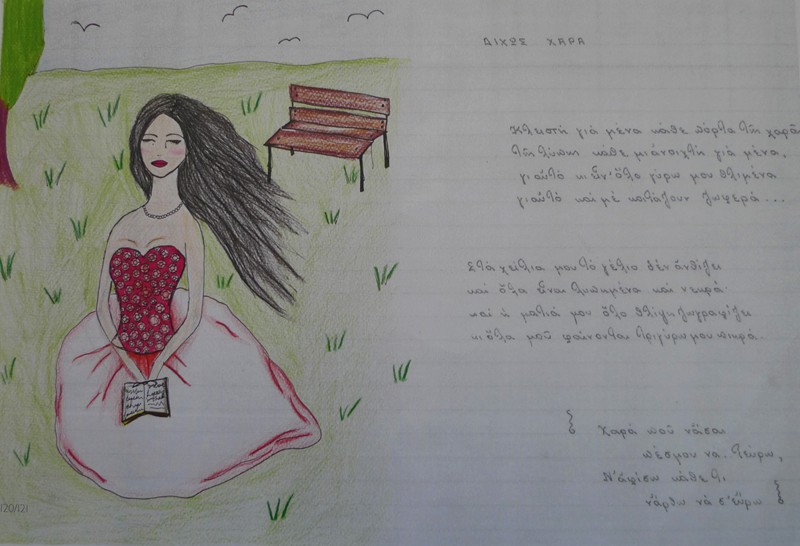 ΔΙΧΩΣ ΧΑΡΑ
Κλειστή γιά μένα κάθε πόρτα τῆς χαρᾶς
τῆς λύπης κάθε μιά ἀνοιχτή γιά μένα,
γι αὐτό κι εἶν' ὅλα γύρω μου θλιμένα
γι αὐτό καί μέ κοιτάζουν ζοφερά...
Στά χείλια μου τό γέλιο δέν ἀνθίζει
καί ὅλα εἶναι λυπημένα καί νεκρά
καί ἡ ματιά μου ὅλο θλίψη ζωγραφίζει
κι ὅλα μοῦ φαίνονται τριγύρω μου πικρά.
Χαρά ποῦ νἆσαι
πέσμου να τεύρω,
Ν' ἀφίσω κάθε τι
νἄρθω νά σ' εὕρω
120/121